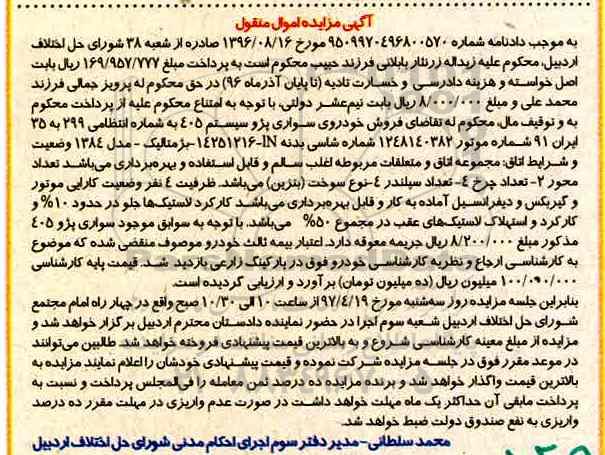 آگهی مزایده اموال منقول
به موجب دادنامه شماره 9509970496800570 مورخ 1396/08/16 صادره از شعبه 38 شورای حل اختلاف
اردبیل، محکوم علیه زیداله زرنثار بابلانی فرزند حبیب محکوم است به پرداخت مبلغ 169/957/777 ریال بابت
اصل خواسته و هزینه دادرسی و خسارت تادیه (تا پایان آذرماه 96) در حق محکوم له پرویز جمالی فرزند
محمد علی و مبلغ 8/000/000 ریال بابت نیم‌عشر دولتی، با توجه به امتناع محکوم علیه از پرداخت محکوم
به و توقیف مال، محکوم له تقاضای فروش خودروی سواری پژو سیستم 405 به شماره انتظامی 299 به 35
ایران 91 شماره موتور 1248140382 شماره شاسی بدنه IN-14251216-بژمتالیک - مدل 1384 وضعیت
و شرایط اتاق: مجموعه اتاق و متعلقات مربوطه اغلب سالم و قابل استفاده و بهره‌برداری می‌باشد تعداد
محور 2- تعداد چرخ 4- تعداد سیلندر 4-نوع سوخت (بنزین) می‌باشد. ظرفیت 4 نفر وضعیت کارایی موتور
و گیربکس و دیفرانسیل آماده به کار و قابل بهره‌برداری می‌باشد کارکرد لاستیک‌ها جلو در حدود 10% و
کارکرد و استهلاک لاستیک‌های عقب در مجموع 50% می‌باشد. با توجه به سوابق موجود سواری پژو 405
مذکور مبلغ 8/200/000 ریال جریمه معوقه دارد. اعتبار بیمه ثالث خودرو موصوف منقضی شده که موضوع
به کارشناسی ارجاع و نظریه کارشناسی خودرو فوق در پارکینگ زارعی بازدید شد. قیمت پایه کارشناسی
100/000/000 میلیون ریال (ده میلیون تومان) برآورد و ارزیابی گردیده است.
بنابراین جلسه مزایده روز سه‌شنبه مورخ 97/4/19 از ساعت 10 الی 10/30 صبح واقع در چهار راه امام مجتمع
شورای حل اختلاف اردبیل شعبه سوم اجرا در حضور نماینده دادستان محترم اردبیل برگزار خواهد شد و
مزایده از مبلغ معینه کارشناسی شروع و به بالاترین قیمت پیشنهادی فروخته خواهد شد. طالبین می‌توانند
در موعد مقرر فوق در جلسه مزایده شرکت نموده و قیمت پیشنهادی خودشان را اعلام نمایند مزایده به
بالاترین قیمت واگذار خواهد شد و برنده مزایده ده درصد ثمن معامله را فی‌المجلس پرداخت و نسبت به
پرداخت مابقی آن حداکثر یک ماه مهلت خواهد داشت در صورت عدم واریزی در مهلت مقرر ده درصد
واریزی به نفع صندوق دولت ضبط خواهد شد.
محمد سلطانی-مدیر دفتر سوم اجرای احکام مدنی شورای حل اختلاف اردبیل